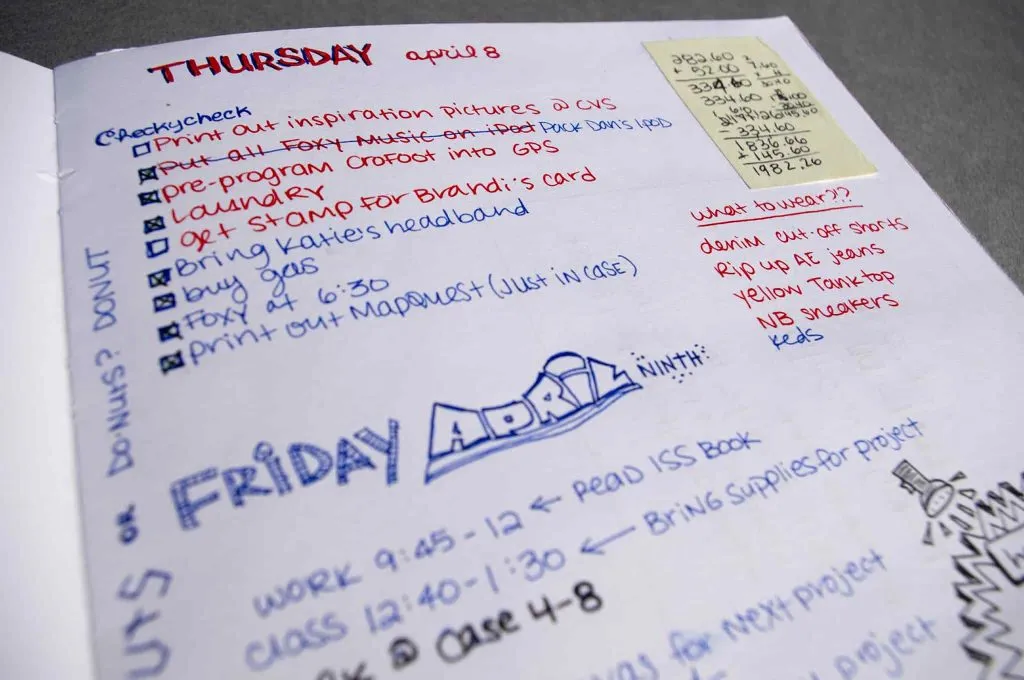 THURSDAY april 8
Checkycheck
Print out inspiration pictures @ CVS
Put all Foxy Music on iPod Pack Dan's ipod
pre-program Crofoot into GPS
LaundRY
get stamp for Brandi's card
Bring Katie's headband
buy gas
Foxy at 6:30
print out MapQuest (Just in case)
282.60
+ 52.00
334.60
334.60
- 334.60
1836.66
+ 145.60
1982.26
what to wear?!?
denim cut-off shorts
Rip up AE jeans
yellow Tank top
NB sneakers
Keds
FRiDAY APRIL NINTH
WORK 9:45-12 ← READ ISS BOOK
CLASS 12:40-1:30 ← BRING supplies for project
@ Case 4-8
for Next project
project
OR DO-NUTS? DONUT